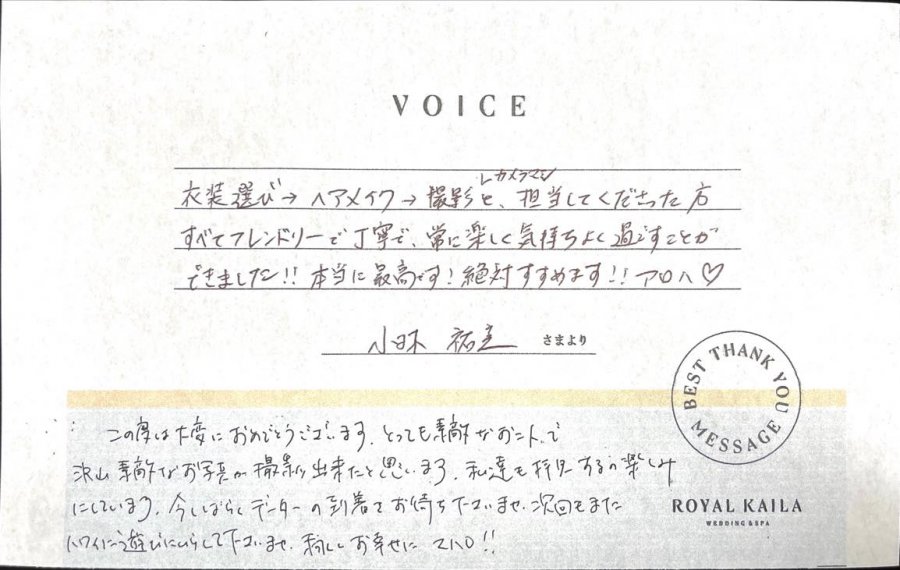 VOICE
カメラマン
衣装選び→ヘアメイク→撮影と、担当してくださった方
すべてフレンドリーで丁寧で、常に楽しく気持ちよく過ごすことが
できました!! 本当に最高です! 絶対すすめます!! アロハ♡
さまより
BEST THANK YOU MESSAGE
この度は大変におめでとうございます。とっても素敵なお二人で
沢山素敵なお写真が撮影出来たと思います。私達も拝見するの楽しみ
にしています。今しばらくデーターの到着をお待ち下さいませ。次回もまた
ハワイに遊びにいらして下さいませ。末永くお幸せに マハロ!!
ROYAL KAILA
WEDDING & SPA